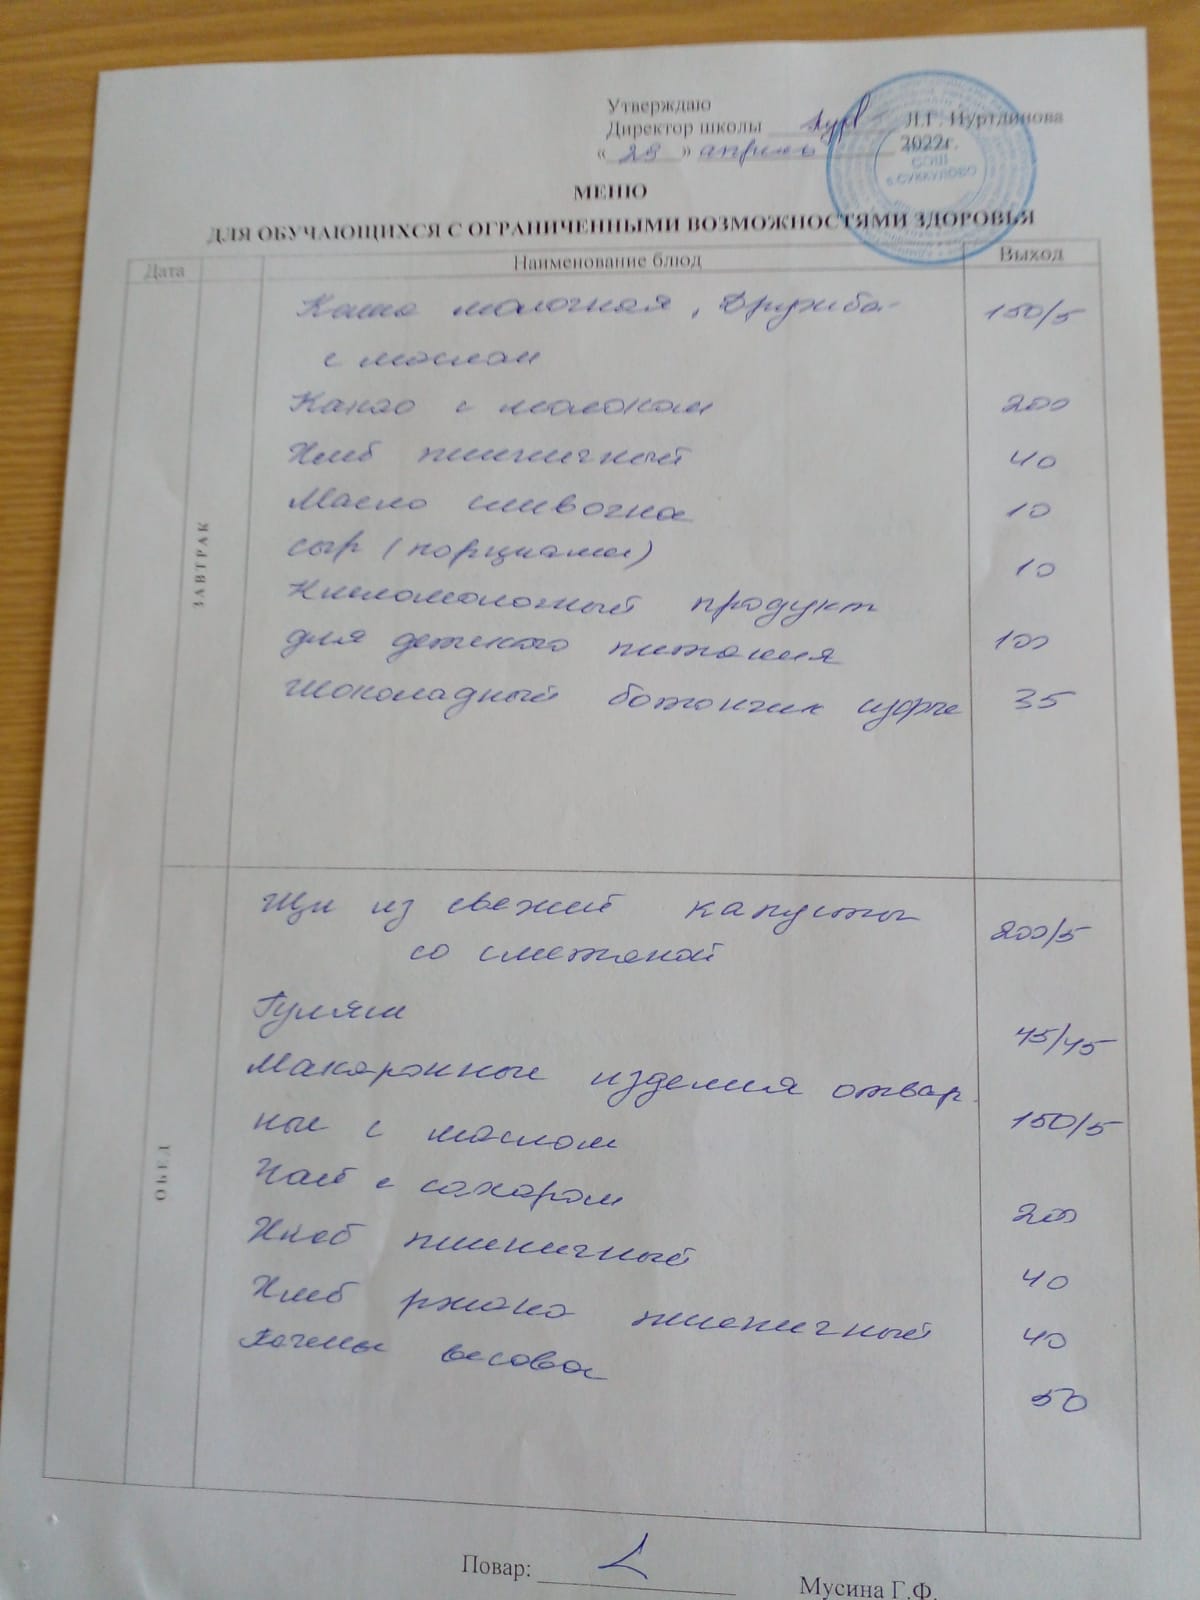 Утверждаю
Директор школы Л.Г. Нуртдинова
« 28 » апрель 2022г.
СОШ
с.СУККУЛОВО
МЕНЮ
ДЛЯ ОБУЧАЮЩИХСЯ С ОГРАНИЧЕННЫМИ ВОЗМОЖНОСТЯМИ ЗДОРОВЬЯ
Дата Наименование блюд Выход
ЗАВТРАК
Каша молочная "Дружба" 150/5
с маслом
Какао с молоком 200
Хлеб пшеничный 40
Масло сливочна 10
сыр (порциями) 10
Кисломолочный продукт
для детского питания 100
Шоколадный батончик 35
ОБЕД
Щи из свежей капусты 200/5
со сметаной
Гуляш 45/45
Макаронные изделия отвар
ные с маслом 150/5
Чай с сахаром 200
Хлеб пшеничный 40
Хлеб ржано пшеничный 40
50
Повар:
Мусина Г.Ф.